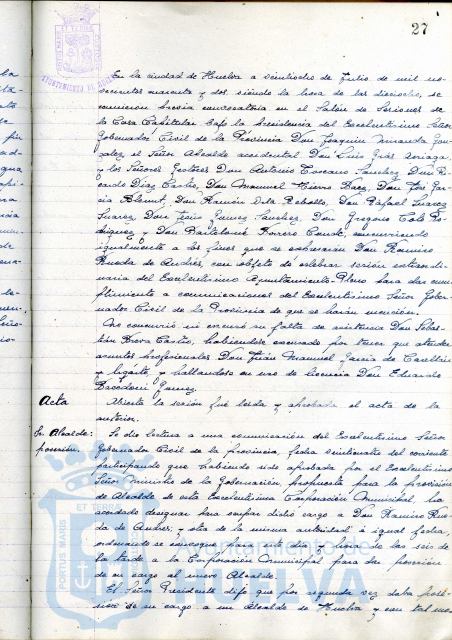 27
AYUNTAMIENTO DE HUELVA
En la ciudad de Huelva a veintiocho de Julio de mil no-
vecientos cuarenta y dos siendo la hora de las dieciocho, se
reunieron previa convocatoria en el Salón de Sesiones de
la Casa Capitular bajo la presidencia del Excelentísimo Señor
Gobernador Civil de la Provincia Don Joaquín Miranda Gon-
zalez el Señor Alcalde accidental Don Luis
y los Señores Gestores Don Antonio Toscano Sanchez Don Ri-
cardo Díaz Castro, Don Manuel Baez, Don José Gar-
cia Don Ramón Rebollo, Don Rafael Suarez
Suarez Don Jesús Gomez Sanchez, Don Gregorio Ro-
driguez y Don Bartolomé Borrero Conde, concurriendo
igualmente a los fines que se expresarán Don Ramiro
Rueda de Andrés, con objeto de celebrar sesión extraordi-
naria del Excelentísimo Ayuntamiento Pleno para dar cum-
plimiento a comunicaciones del Excelentísimo Señor Gober-
nador Civil de la Provincia de que se hará mención.
No concurrió ni excusó su falta de asistencia Don Sebas-
tián habiéndose excusado por tener que atender
asuntos profesionales Don Juan Manuel García de
y hallandose en uso de licencia Don Eduardo
Gomez.
Acta
Abierta la sesión fué leida y aprobada el acta de la
anterior.
Sr. Alcalde:
posesión.
Se dio lectura a una comunicación del Excelentísimo Señor
Gobernador Civil de la provincia, fecha veintisiete del corriente
participando que habiendo sido aprobada por el Excelentísimo
Señor Ministro de la Gobernación, propuesta para la provisión
de Alcalde de esta Excelentísima Corporación Municipal, ha
acordado designar para ocupar dicho cargo a Don Ramiro Rue-
da de Andrés; y otra de la misma autoridad é igual fecha,
ordenando se convoque para este dia y hora de las seis de
la tarde a la Corporación Municipal para dar posesión
de su cargo al nuevo Alcalde.
El Señor Presidente dijo que por segunda vez daba pose-
sión de su cargo a un Alcalde de Huelva y con tal mo-
PORTUS MARIS
ET TE
Ayuntamiento de
HUELVA